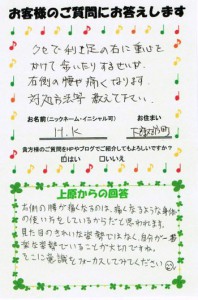 お客様のご質問にお答えします
クセで利き足の右に重心を
かけて傘いたりするせいか
右側の腰や痛くなります。
対処方法等教えて下さい。
お名前(ニックネーム・イニシャル可)
お住まい
H.K
貴方様のご質問をHPやブログでご紹介してもよろしいですか?
☑はい □いいえ
上原からの回答
右側の腰が痛くなるのは、痛くなるような身体
の使い方をしているからだと思われます。
見た目のきれいな姿勢ではなく、自分が一番
楽な姿勢でいることが大切ですね。
そこに意識をフォーカスしてみてください